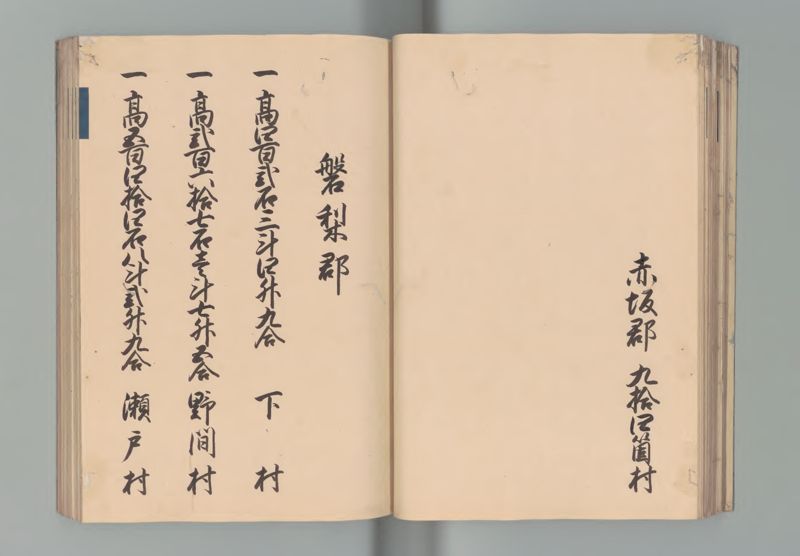 赤坂郡 九拾四箇村
磐梨郡
一 高四百弐石三斗四升九合 下村
一 高弐百六拾七石壱斗七升五合 野間村
一 高五百四拾四石八斗弐升九合 瀬戸村